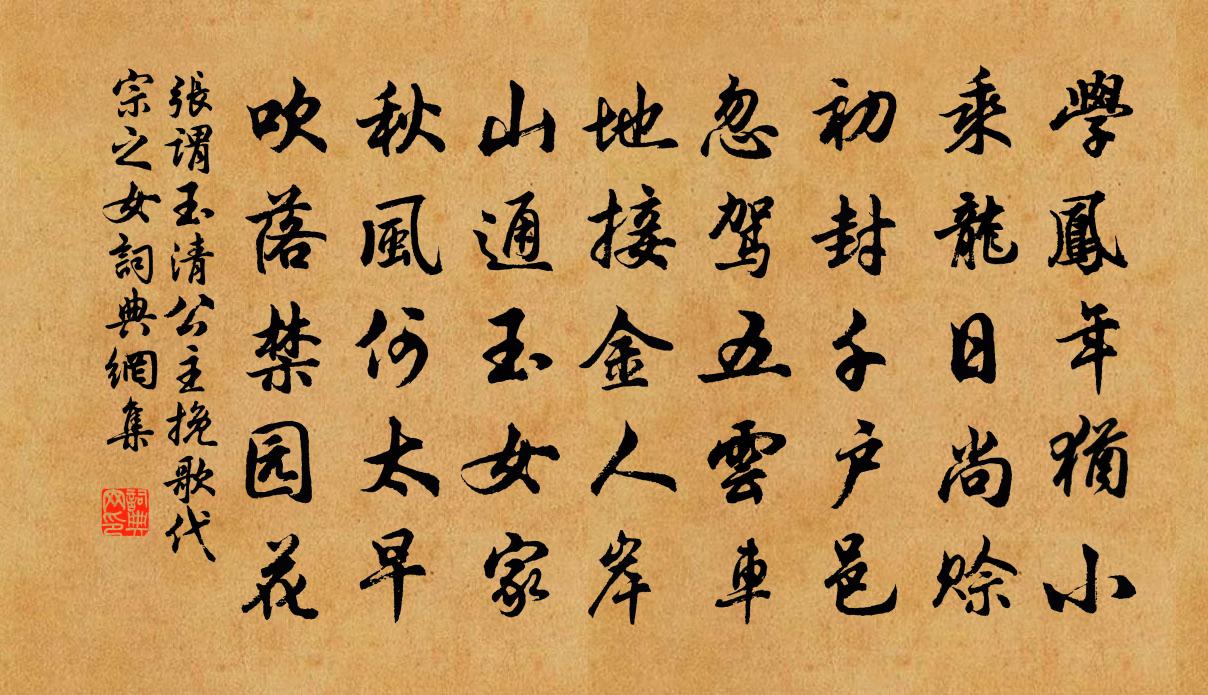 學鳳年猶小
乘龍日尚賒
初封千戶邑
忽駕五雲車
地接金人岸
山通玉女家
秋風何太早
吹落禁园花
張謂玉清公主挽歌代
宗之女詞典網集
詞典网印